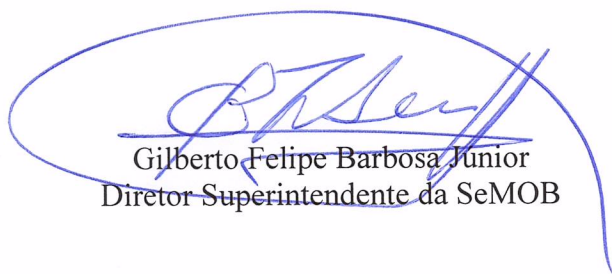 Gilberto Felipe Barbosa Junior
Diretor Superintendente da SeMOB